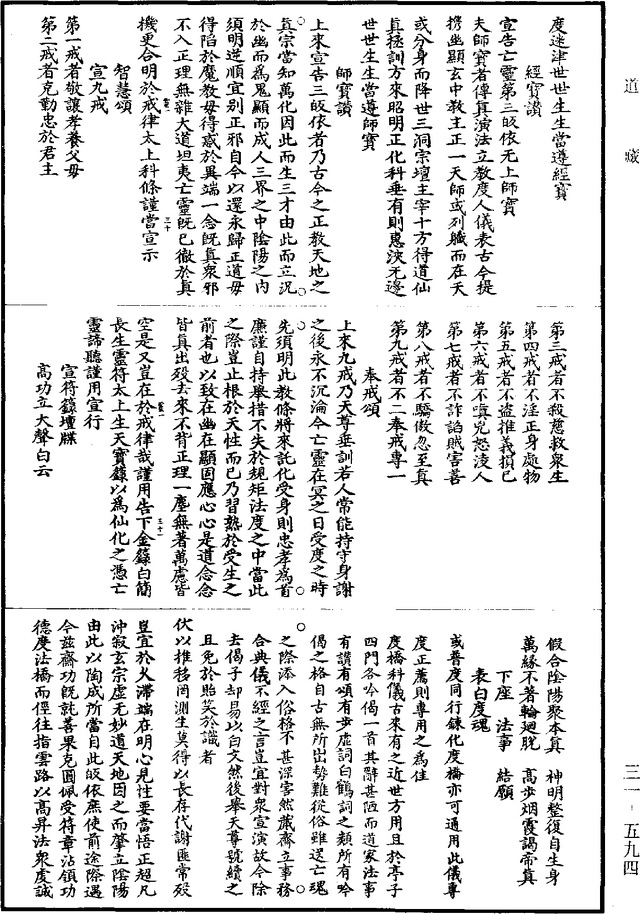 道藏
三一·五九四
度迷津世世生生當遵經寶
經寶讚
宣告亡靈第三皈依无上師寶
夫師寶者傳眞演法立教度人儀表古今提
携幽顯玄中教主正一天師或列職而在天
或分身而降世三洞宗壇主宰十方得道仙
眞極訓方來昭明正化科垂有則惠浹无邊
世世生生當遵師寶
師寶讚
上來宣告三皈依者乃古今之正教天地之
眞宗當知萬化因此而生三才由此而立況
於幽而爲鬼顯而成人三界之中陰陽之內
須明逆順宜別正邪自今以還永歸正道毋
得陷於魔教毋得惑於異端一念旣眞衆邪
不入正理無雜大道坦夷亡靈旣已徹於眞
機更合明於戒律太上科條謹當宣示
智慧頌
宣九戒
第一戒者敬讓孝養父母
第二戒者克勤忠於君主
第三戒者不殺慈救衆生
第四戒者不淫正身處物
第五戒者不盗推義損已
第六戒者不嗔兇怒淩人
第七戒者不詐諂賊害善
第八戒者不驕傲忽至眞
第九戒者不二奉戒專一
奉戒頌
上來九戒乃天尊垂訓若人常能持守身謝
之後永不沉淪今亡靈在冥之日受度之時
先須明此教條將來託化受身則忠孝爲首
廉謹自持舉措不失於規矩法度之中當此
之際豈止根於天性而已乃習熟於受生之
前者也以致在幽在顯因應心心是道念念
皆眞出殁去來不背正理一塵無著萬慮皆
空是又豈在於戒律哉謹用告下金籙白簡
長生靈符太上生天寶籙以爲仙化之憑亡
靈諦聽謹用宣行
宣符籙壇牒
高功立大聲白云
假合陰陽聚本眞 神明整復自生身
萬緣不著輪迴脫 高步烟霞謁帝眞
下座 法事 結願
表白度魂
或普度同行鍊化度橋亦可通用此儀專
度正薦則專用之爲佳
度橋科儀古來有之近世方用且於亭子
四門各吟偈一首其辭甚陋而道家法事
有讚有頌有步虛詞白鶴詞之類所有吟
偈之格自古無所出勢難從俗雖送亡魂
之際添入俗格不甚深害然蕆齋立事務
合典儀不經之言豈宜對衆宣演故今除
去偈子却易以白文然後舉天尊號續之
且免於貽笑於識者
伏以推移罔測生莫得以長存代謝匪常殁
豈宜於久滯端在明心見性要當悟正超凡
沖寂玄宗虛无妙道天地因之而肇立陰陽
由此以陶成所當自此皈依庶使前途際遇
今兹齋功旣就善果克圓佩受符章沾領功
德度法橋而徑往指雲路以高昇法衆虔誠